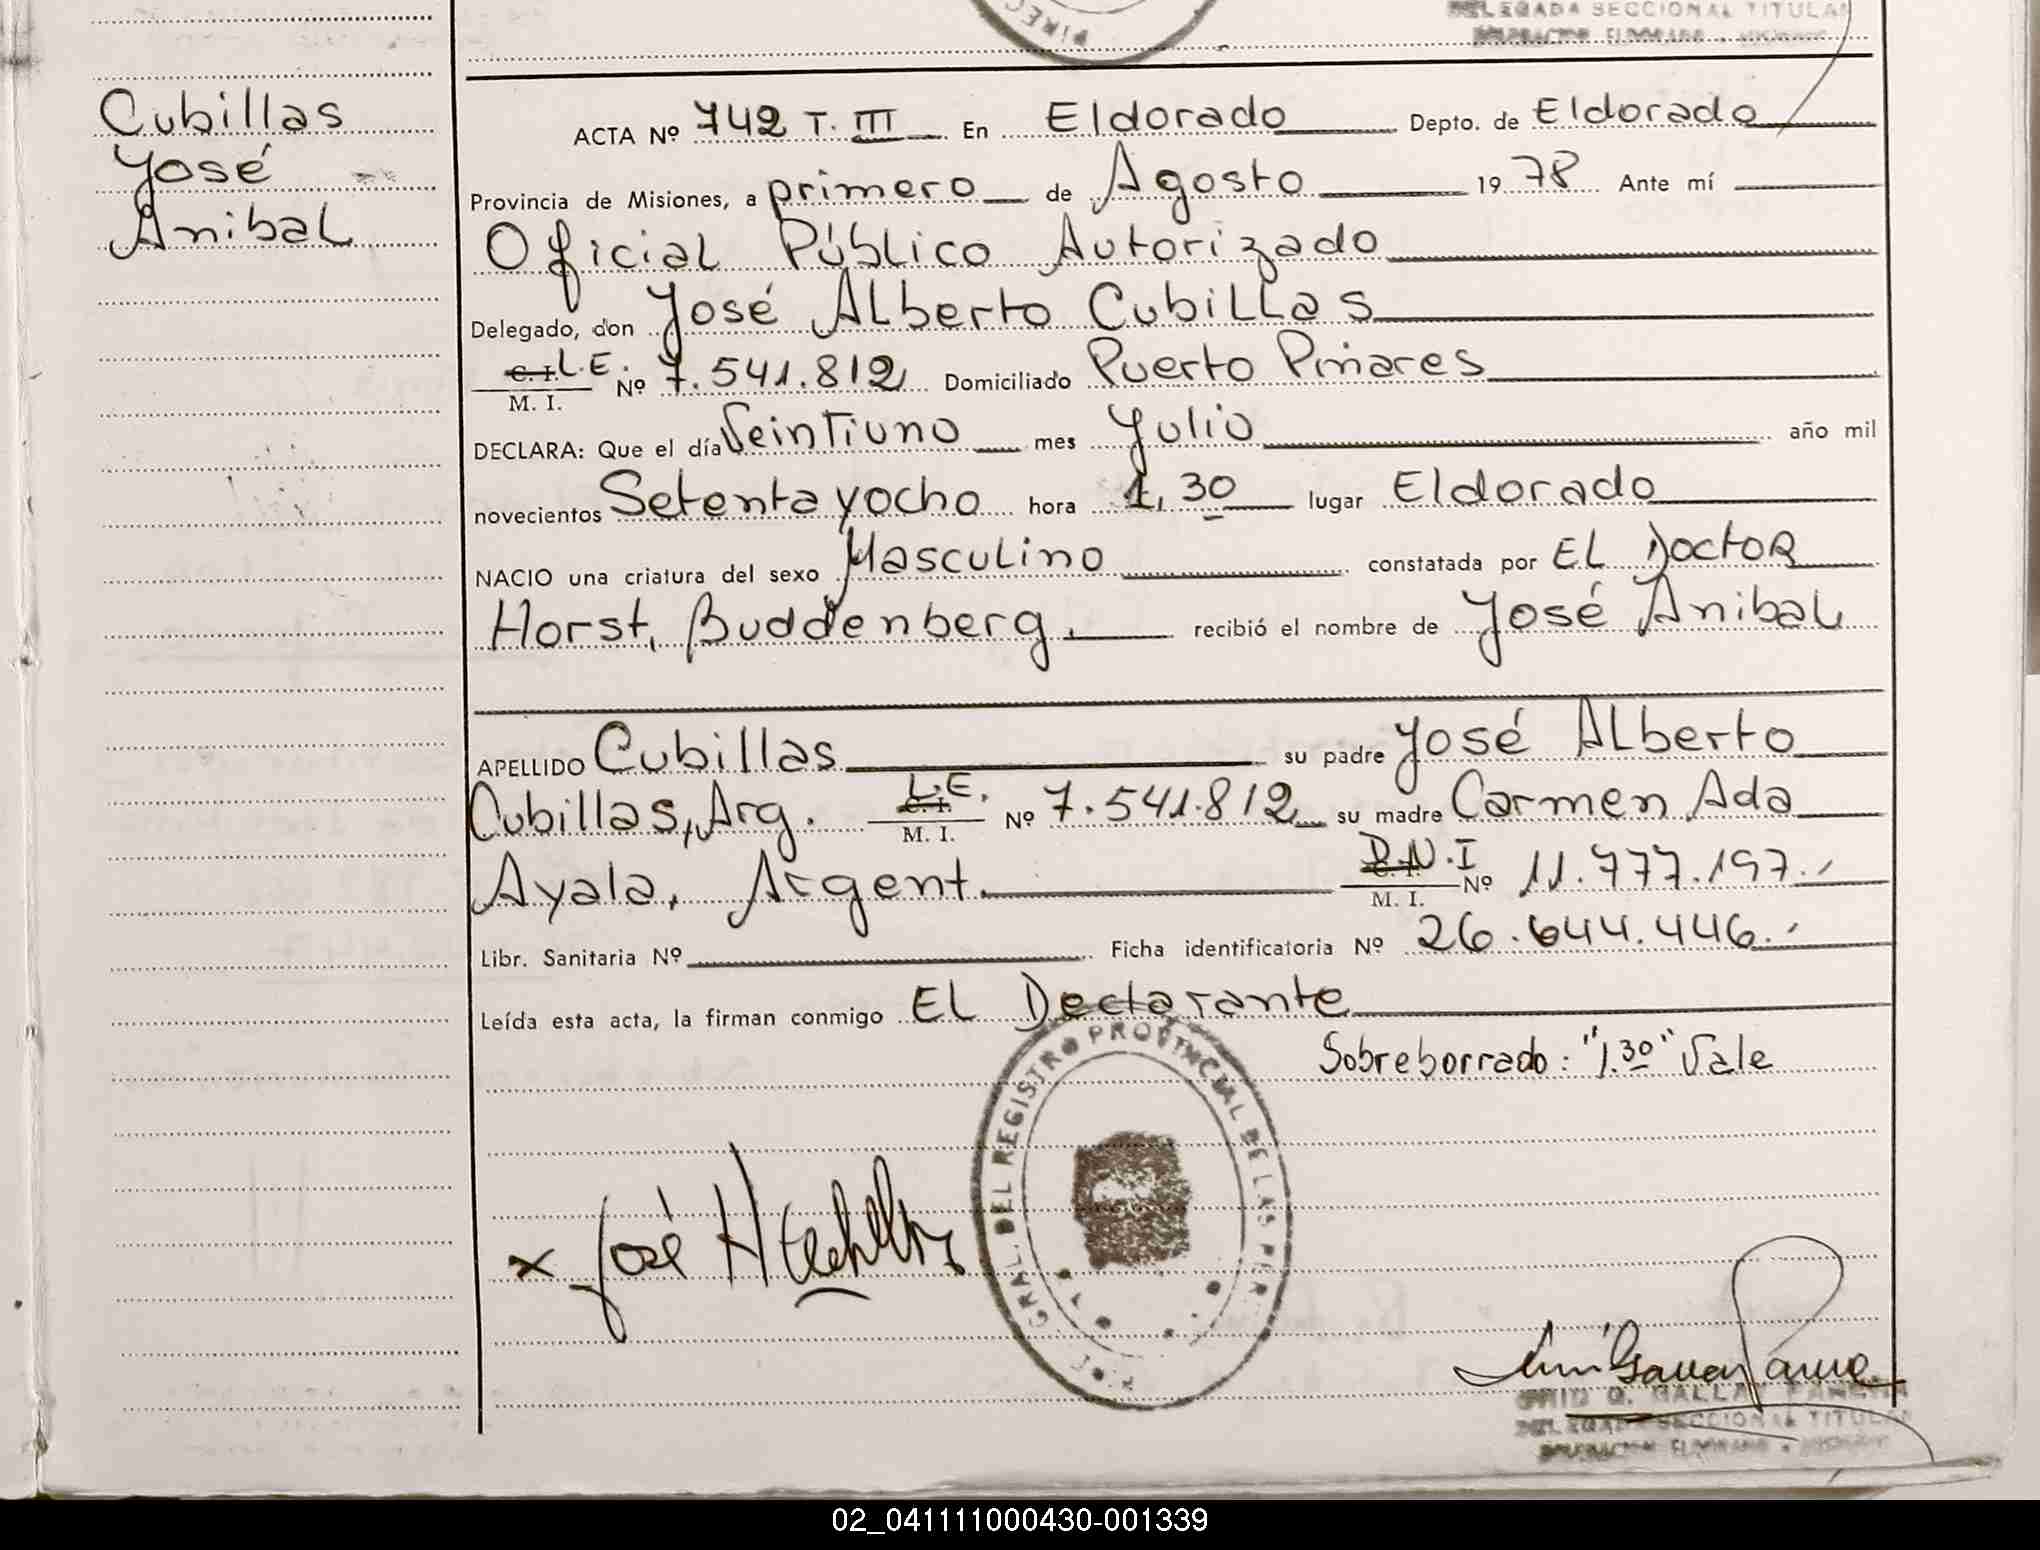 DELEGADA SECCIONAL TITULAR
Cubillas
José
Anibal
ACTA Nº 742 T. III En Eldorado Depto. de Eldorado
Provincia de Misiones, a primero de Agosto 1978 Ante mí
Oficial Público Autorizado
Delegado, don José Alberto Cubillas
C.I. L.E. Nº 7.541.812 Domiciliado Puerto Piñares
M. I.
DECLARA: Que el día Veintiuno mes Julio año mil
novecientos Setenta y ocho hora 1,30 lugar Eldorado
NACIO una criatura del sexo Masculino constatada por El Doctor
Horst, Buddenberg. recibió el nombre de José Anibal
APELLIDO Cubillas su padre José Alberto
Cubillas, Arg. L.E. C.I. Nº 7.541.812 su madre Carmen Ada
M. I.
Ayala, Argent. D.N.I C.I. Nº 11.777.197.
M. I.
Libr. Sanitaria Nº Ficha identificatoria Nº 26.644.446.
Leída esta acta, la firman conmigo El Declarante
Sobreborrado: "1.30" Vale
GRAL. DEL REGISTRO PROVINCIAL DE LAS PER
x José
DELEGADA SECCIONAL TITULAR
02_041111000430-001339